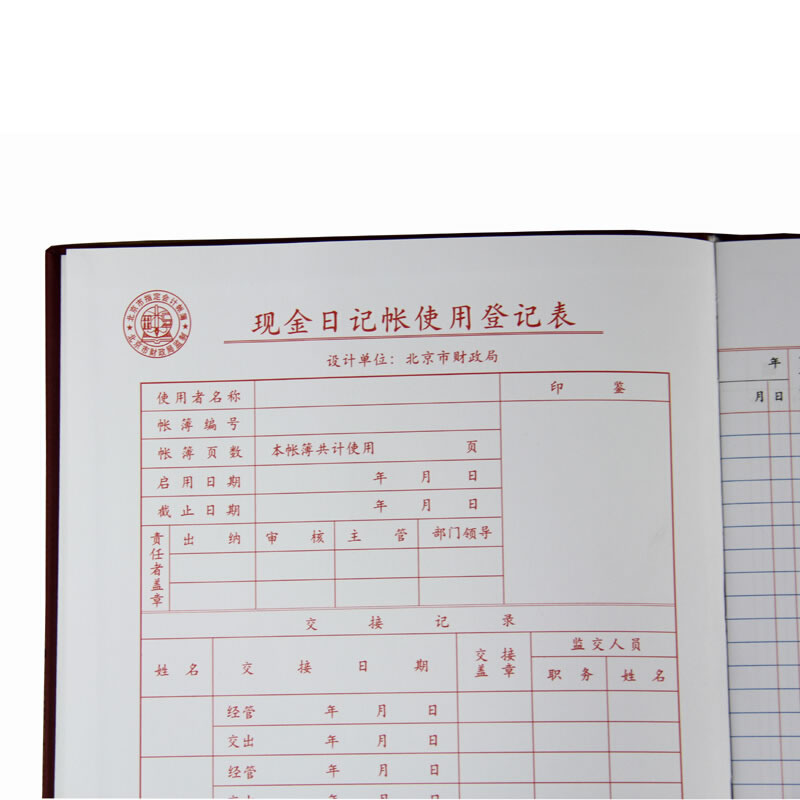 北京市指定会计帐簿
北京市财政局监制
现金日记帐使用登记表
设计单位：北京市财政局
使用者名称
印 鉴
帐簿编号
帐簿页数 本帐簿共计使用 页
启用日期 年 月 日
截止日期 年 月 日
责任者盖章 出 纳 审 核 主 管 部门领导
交 接 记 录
姓 名 交 接 日 期 交接盖章 监交人员
职 务 姓 名
经管 年 月 日
交出 年 月 日
经管 年 月 日
交出 年 月 日
年
月 日